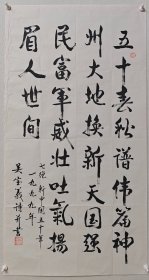 五十春秋谱伟篇神
州大地换新天国强
民富军威壮吐氣揚
眉人世间
七绝 新中国五十年
一九九九年
吴宝义诗并书